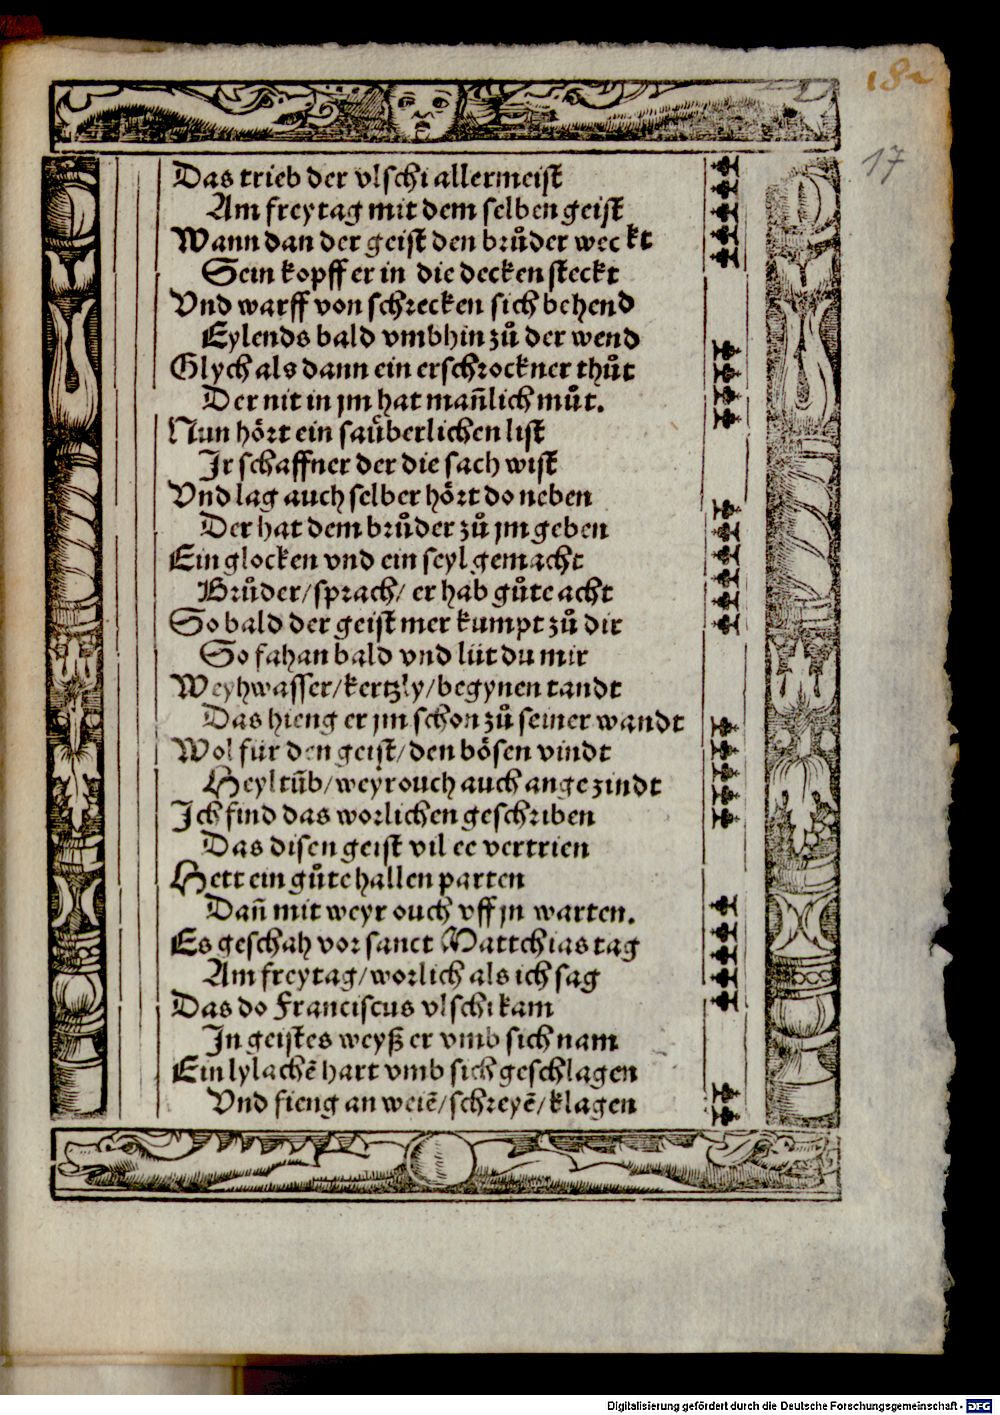 182
17
Das trieb der vlschi allermeist
Am freytag mit dem selben geist
Wann dan der geist den brůder weckt
Sein kopff er in die decken steckt
Vnd warff von schrecken sich behend
Eylends bald vmbhin zů der wend
Glych als dann ein erschrockner thůt
Der nit in jm hat mañlich můt.
Nun hört ein saüberlichen list
Ir schaffner der die sach wist
Vnd lag auch selber hört do neben
Der hat dem brůder zů jm geben
Ein glocken vnd ein seyl gemacht
Brůder/sprach/ er hab gůte acht
So bald der geist mer kumpt zů dir
So fahan bald vnd lüt du mir
Weyhwasser/kertzly/begynen tandt
Das hieng er jm schon zů seiner wandt
Wol für den geist/den bösen vindt
Heyltūb/weyrouch auch angezindt
Ich find das worlichen geschriben
Das disen geist vil ee vertrien
Hett ein gůte hallen parten
Dañ mit weyrouch vff jn warten.
Es geschah vor sanct Mattchias tag
Am freytag/worlich als ich sag
Das do Franciscus vlschi kam
In geistes weyß er vmb sich nam
Ein lylachē hart vmb sich geschlagen
Vnd fieng an weiē/schreyē/klagen
Digitalisierung gefördert durch die Deutsche Forschungsgemeinschaft - DFG